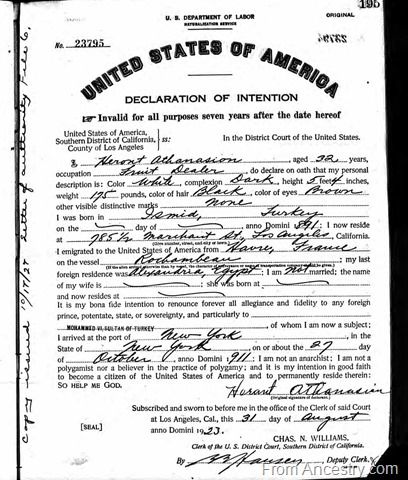 195
U. S. DEPARTMENT OF LABOR
NATURALIZATION SERVICE
ORIGINAL
No. 23795
UNITED STATES OF AMERICA
DECLARATION OF INTENTION
Invalid for all purposes seven years after the date hereof
United States of America,
Southern District of California,
County of Los Angeles
ss:
In the District Court of the United States.
I, Heront Athanasion, aged 32 years,
occupation Fruit Dealer, do declare on oath that my personal
description is: Color White, complexion Dark, height 5 feet inches,
weight 175 pounds, color of hair Black, color of eyes Brown
other visible distinctive marks None
I was born in Ismid, Turkey
on the day of, anno Domini 1891; I now reside
at 785½ Marchant St, Los Angeles, California.
(Give number, street, and city or town)
I emigrated to the United States of America from Havre, France
on the vessel Rochambeau; my last
(If the alien arrived otherwise than by vessel, the character of conveyance or name of transportation company should be given)
foreign residence was Alexandria, Egypt. I am Not married; the name
of my wife is; she was born at
and now resides at
It is my bona fide intention to renounce forever all allegiance and fidelity to any foreign
prince, potentate, state, or sovereignty, and particularly to
MOHAMMED VI, SULTAN OF TURKEY, of whom I am now a subject;
I arrived at the port of New York, in the
State of New York on or about the 27 day
of October, anno Domini 1911: I am not an anarchist; I am not a
polygamist nor a believer in the practice of polygamy; and it is my intention in good faith
to become a citizen of the United States of America and to permanently reside therein:
SO HELP ME GOD.
Herant Athanasian
(Original signature of declarant)
Subscribed and sworn to before me in the office of the Clerk of said Court
[SEAL]
at Los Angeles, Cal., this 31 day of August
anno Domini 1923.
CHAS. N. WILLIAMS,
Clerk of the U. S. District Court, Southern District of California.
By Hansen, Deputy Clerk.
Copy issued 10/17/27
From Ancestry.com